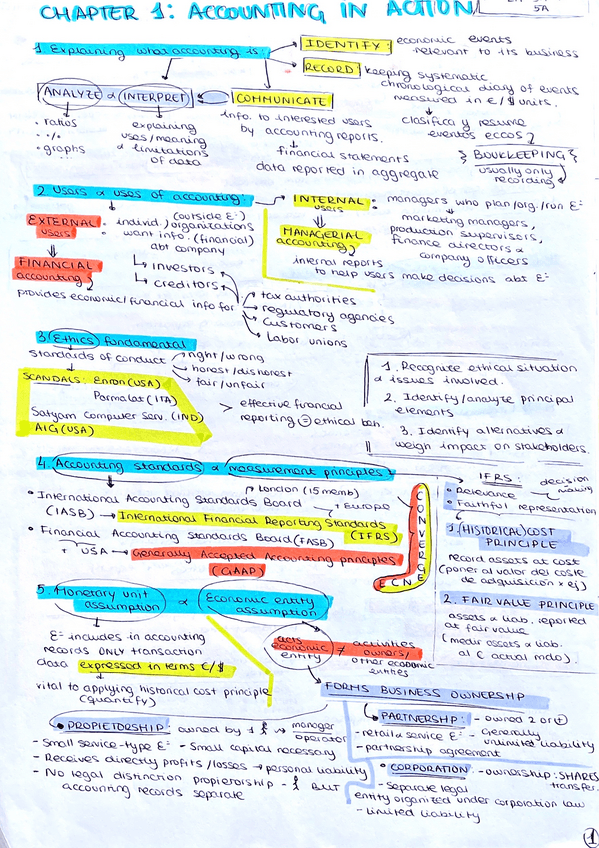 CHAPTER 1: ACCOUNTING IN ACTION
5A
1. Explaining what accounting is:
IDENTIFY: economic events
relevant to its business
RECORD: keeping systematic
chronological diary of events
measured in €/$ units.
ANALYZE & INTERPRET
COMMUNICATE
· ratios
· ·/·
· graphs
explaining
uses/meaning
& limitations
of data
info. to interested users
by accounting reports.
financial statements
data reported in aggregate
clasifica y resume
eventos eccos
BOOKKEEPING
usually only
recording
2. Users & uses of accounting:
INTERNAL users : managers who plan/org./run E=
marketing managers,
production supervisors,
finance directors &
company officers
MANAGERIAL
accounting
internal reports
to help users make decisions abt E=
EXTERNAL users : (outside E=)
individ/organizations
want info. (financial)
abt company
investors
creditors
FINANCIAL
accounting
provides economic/financial info for
tax authorities
regulatory agencies
Customers
Labor unions
3. Ethics) fundamental
standards of conduct
right/wrong
honest/dishonest
fair/unfair
SCANDALS: Enron (USA)
Parmalat (ITA)
Satyam Computer Serv. (IND)
AIG (USA)
> effective financial
reporting = ethical beh.
1. Recognize ethical situation
& issues involved.
2. Identify/analyze principal
elements
3. Identify alternatives &
weigh impact on stakeholders.
4. Accounting standards & measurement principles
London (15 memb)
• International Accounting Standards Board
(IASB) → International Financial Reporting Standards
(IFRS)
Europe
• Financial Accounting Standards Board (FASB)
USA → Generally Accepted Accounting principles
(GAAP)
CONVERGENCE
IFRS:
• Relevance
• Faithful representation
decision
making
1. (HISTORICAL) COST
PRINCIPLE
record assets at cost
(poner al valor del coste
de adquisición x ej)
2. FAIR VALUE PRINCIPLE
assets & liab. reported
at fair value
(medir assets & liab.
al € actual mdo)
5. Monetary unit
assumption & Economic entity
assumption
E= includes in accounting
records ONLY transaction
data expressed in terms €/$
vital to applying historical cost principle
(quantify)
acts
economic
entity
≠ activities
owners/
other economic
entities
FORMS BUSINESS OWNERSHIP
• PROPIETORSHIP: owned by 1
manager
operator
- Small service-type E= - Small capital necessary
- Receives directly profits/losses → personal liability
- No legal distinction propierorship - BUT
accounting records separate
• PARTNERSHIP: - owned 2 or +
- retail & service E= - Generally
unlimited liability
- partnership agreement
• CORPORATION: - ownership: SHARES
transfer.
- Separate legal
entity organized under corporation law
- limited liability
1